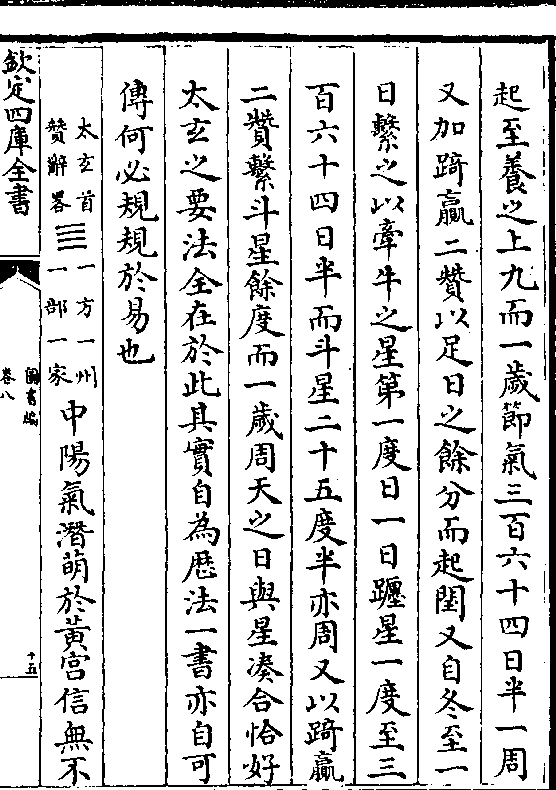 起至養之上九而一歲節氣三百六十四日半一周
又加踦贏二贊以足日之餘分而起閏又自冬至一
日繫之以牽牛之星第一度日一日躔星一度至三
百六十四日半而斗星二十五度半亦周又以踦贏
二贊繫斗星餘度而一歲周天之日與星湊合恰好
太玄之要法全在於此其實自為厯法一書亦自可
傳何必規規於易也
太玄首
贊辭畧
𝌆
一方一州
一部一家
中陽氣潛萌於黃宫信無不
欽定四庫全書
圖書編
卷八
十五